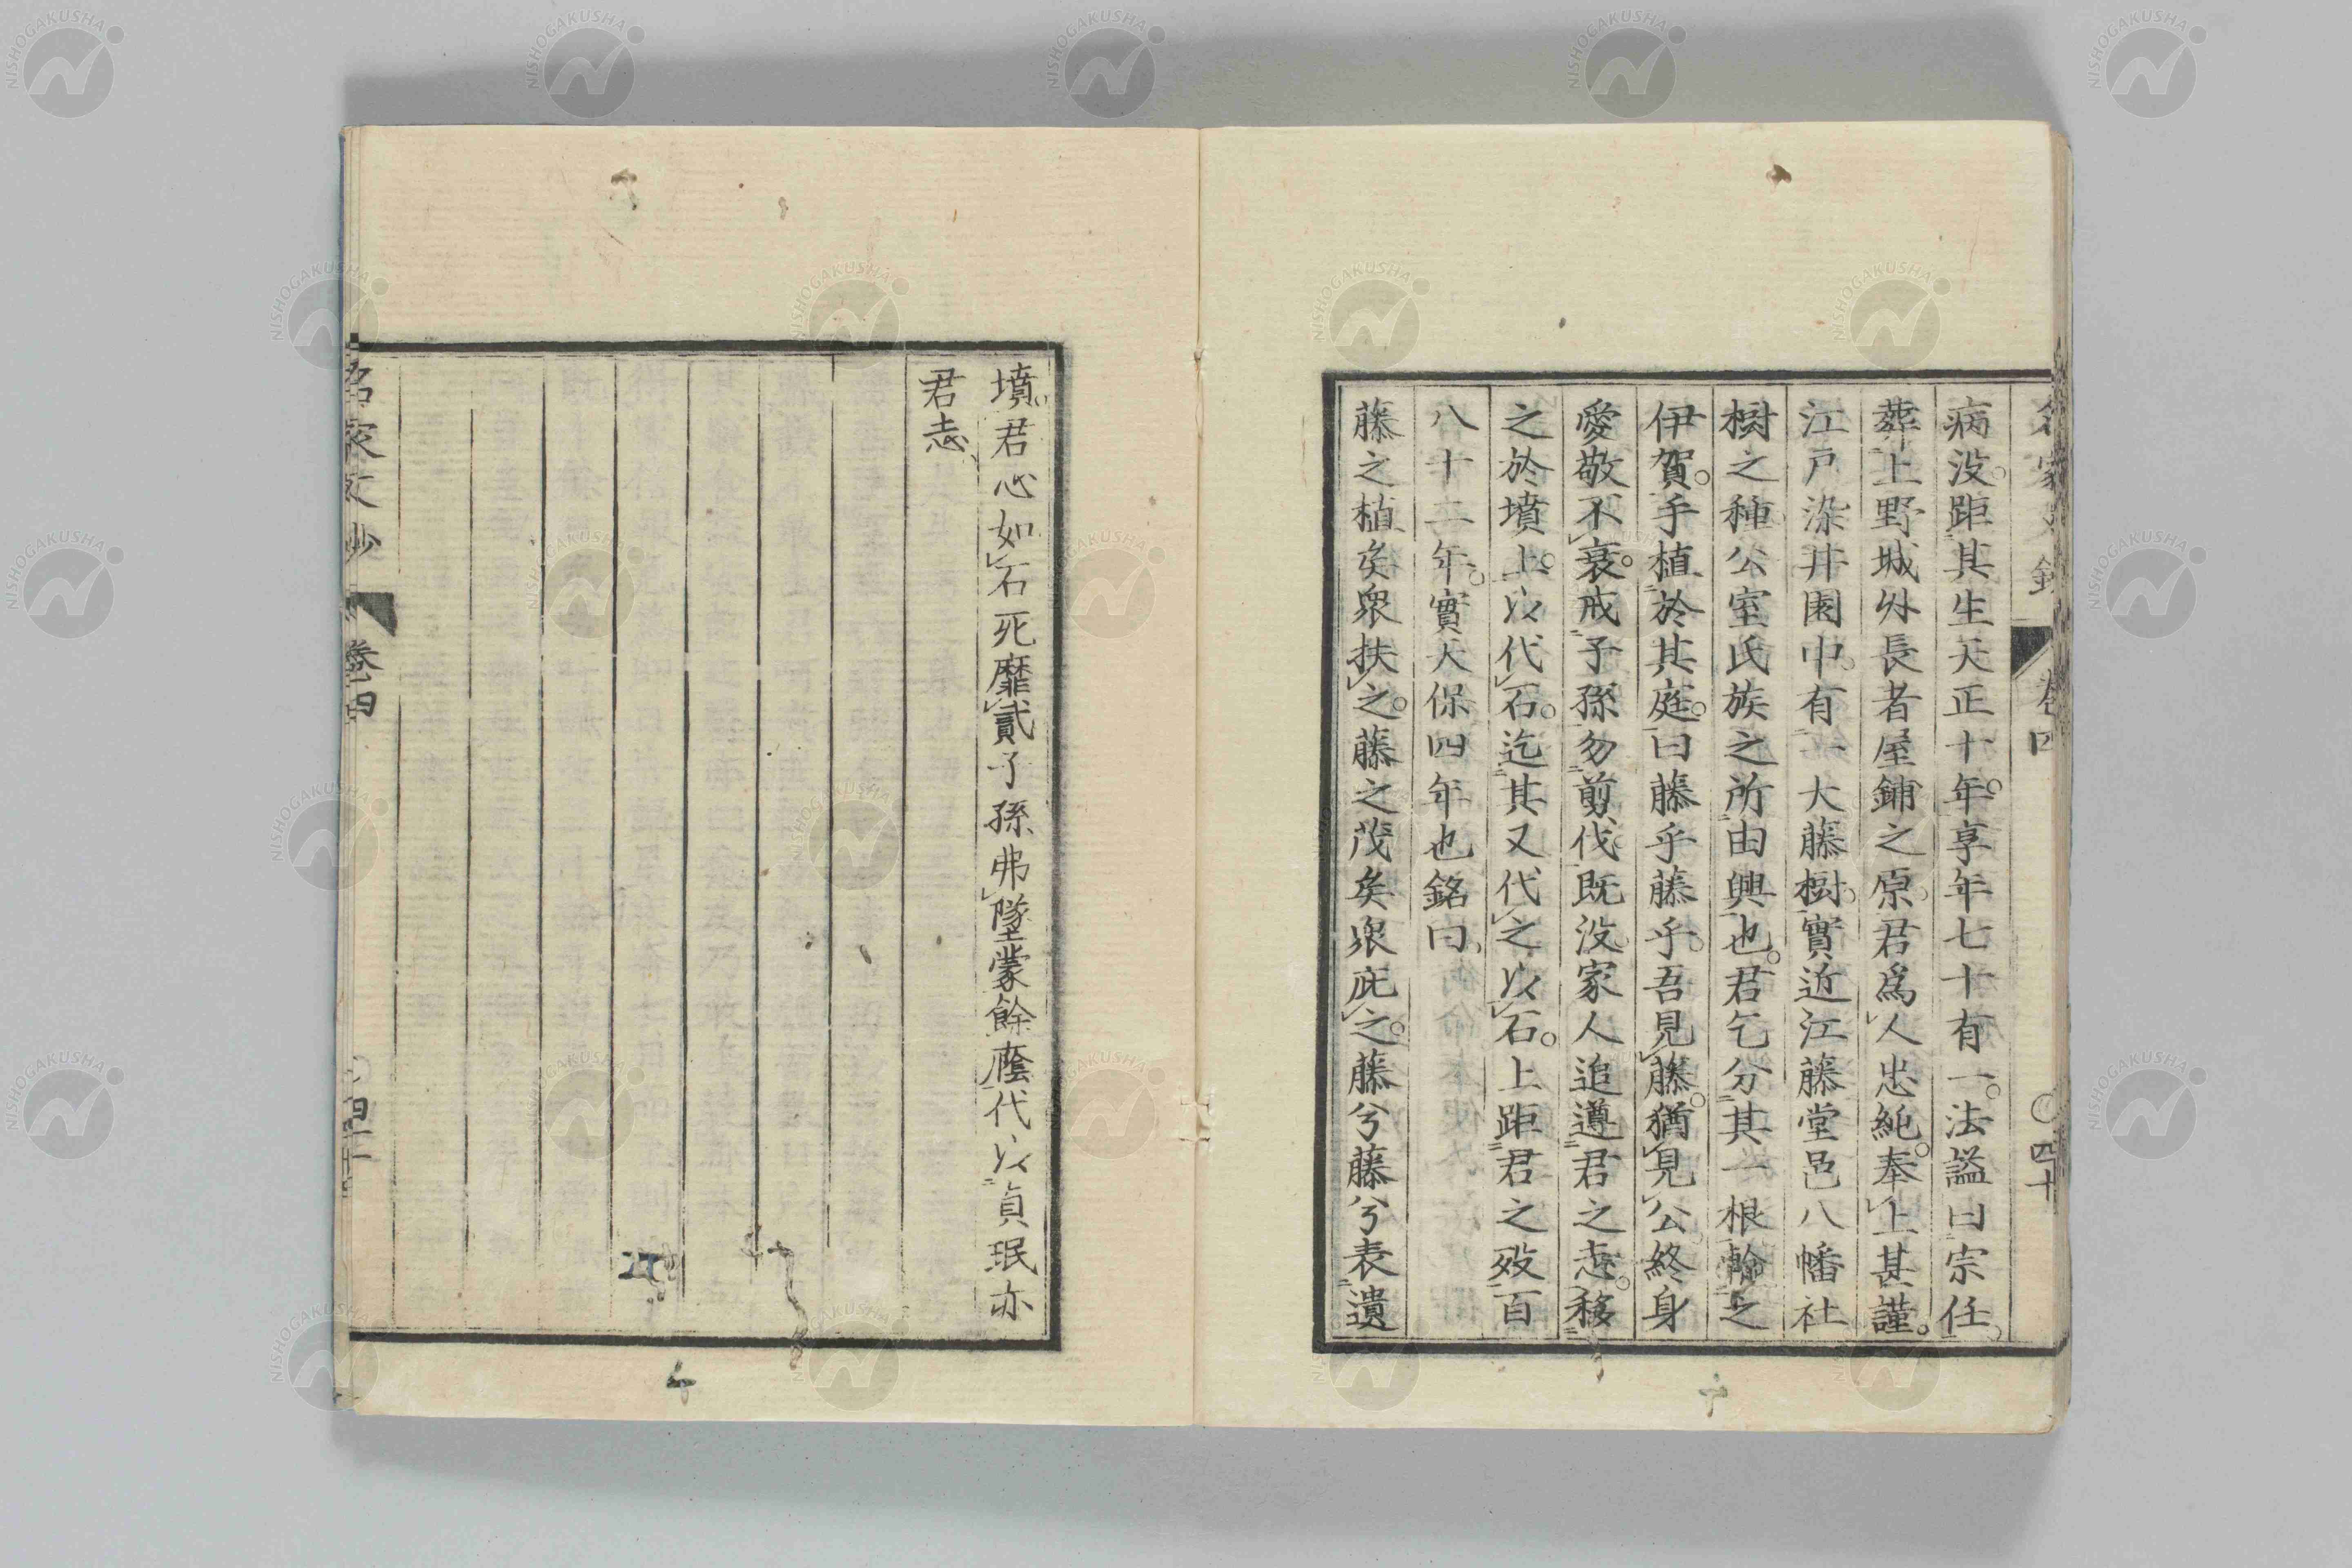 病没。距其生天正十年。享年七十有一。法謚曰宗任。
葬上野城外長者屋鋪之原。君爲人忠純。奉上甚謹。
江戸染井園中。有一大藤樹。實近江藤堂邑八幡社
樹之種公室氏族之所由興也。君乞分其一根輸之
伊賀。手植於其庭。曰藤乎藤乎。吾見藤。猶見公終身
愛敬不衰。戒子孫勿剪伐。既没家人追遵君之志。移
之於墳上。以代石。迄其又代之以石。上距君之歿百
八十二年。實天保四年也銘曰、
藤之植矣衆扶之。藤之茂矣衆庇之。藤兮藤兮表遺
墳。君心如石死靡貳子孫弗墜蒙餘廕代以貞珉亦
君志、
名家文抄
卷四
四十
名家文抄
卷四
四十一
NISHOGAKUSHA